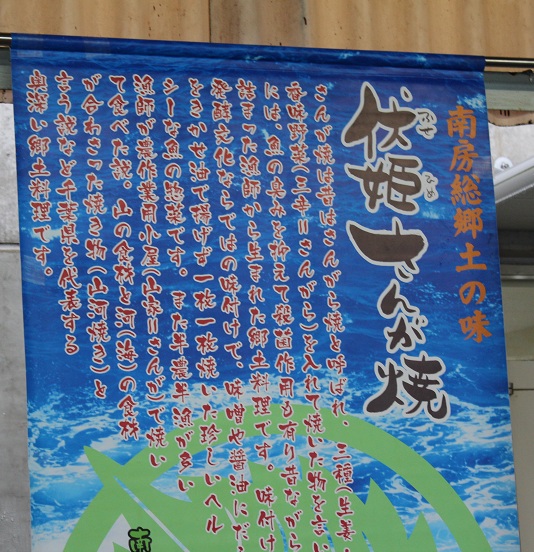 南房総郷土の味
伏姫さんが焼
ふせ ひめ
さんが焼は昔はさんがら焼と呼ばれ、三種(生姜
香味野菜(三辛=さんがら)を入れて焼いた物を言い
には、魚の臭みを抑えて殺菌作用も有り昔ながら
詰まった漁師から生まれた郷土料理です。味付け
発酵文化ならではの味付けで、味噌や醤油にだ
をきかせ油で揚げず一枚一枚焼いた珍しいヘル
シーな魚の惣菜です。また半農半漁が多い
漁師が農作業用小屋(山家=さんが)で焼い
て食べた説。山の食材と河(海)の食材
が合わさった焼き物(山河焼き)と
言う説など千葉県を代表する
奥深い郷土料理です。
南